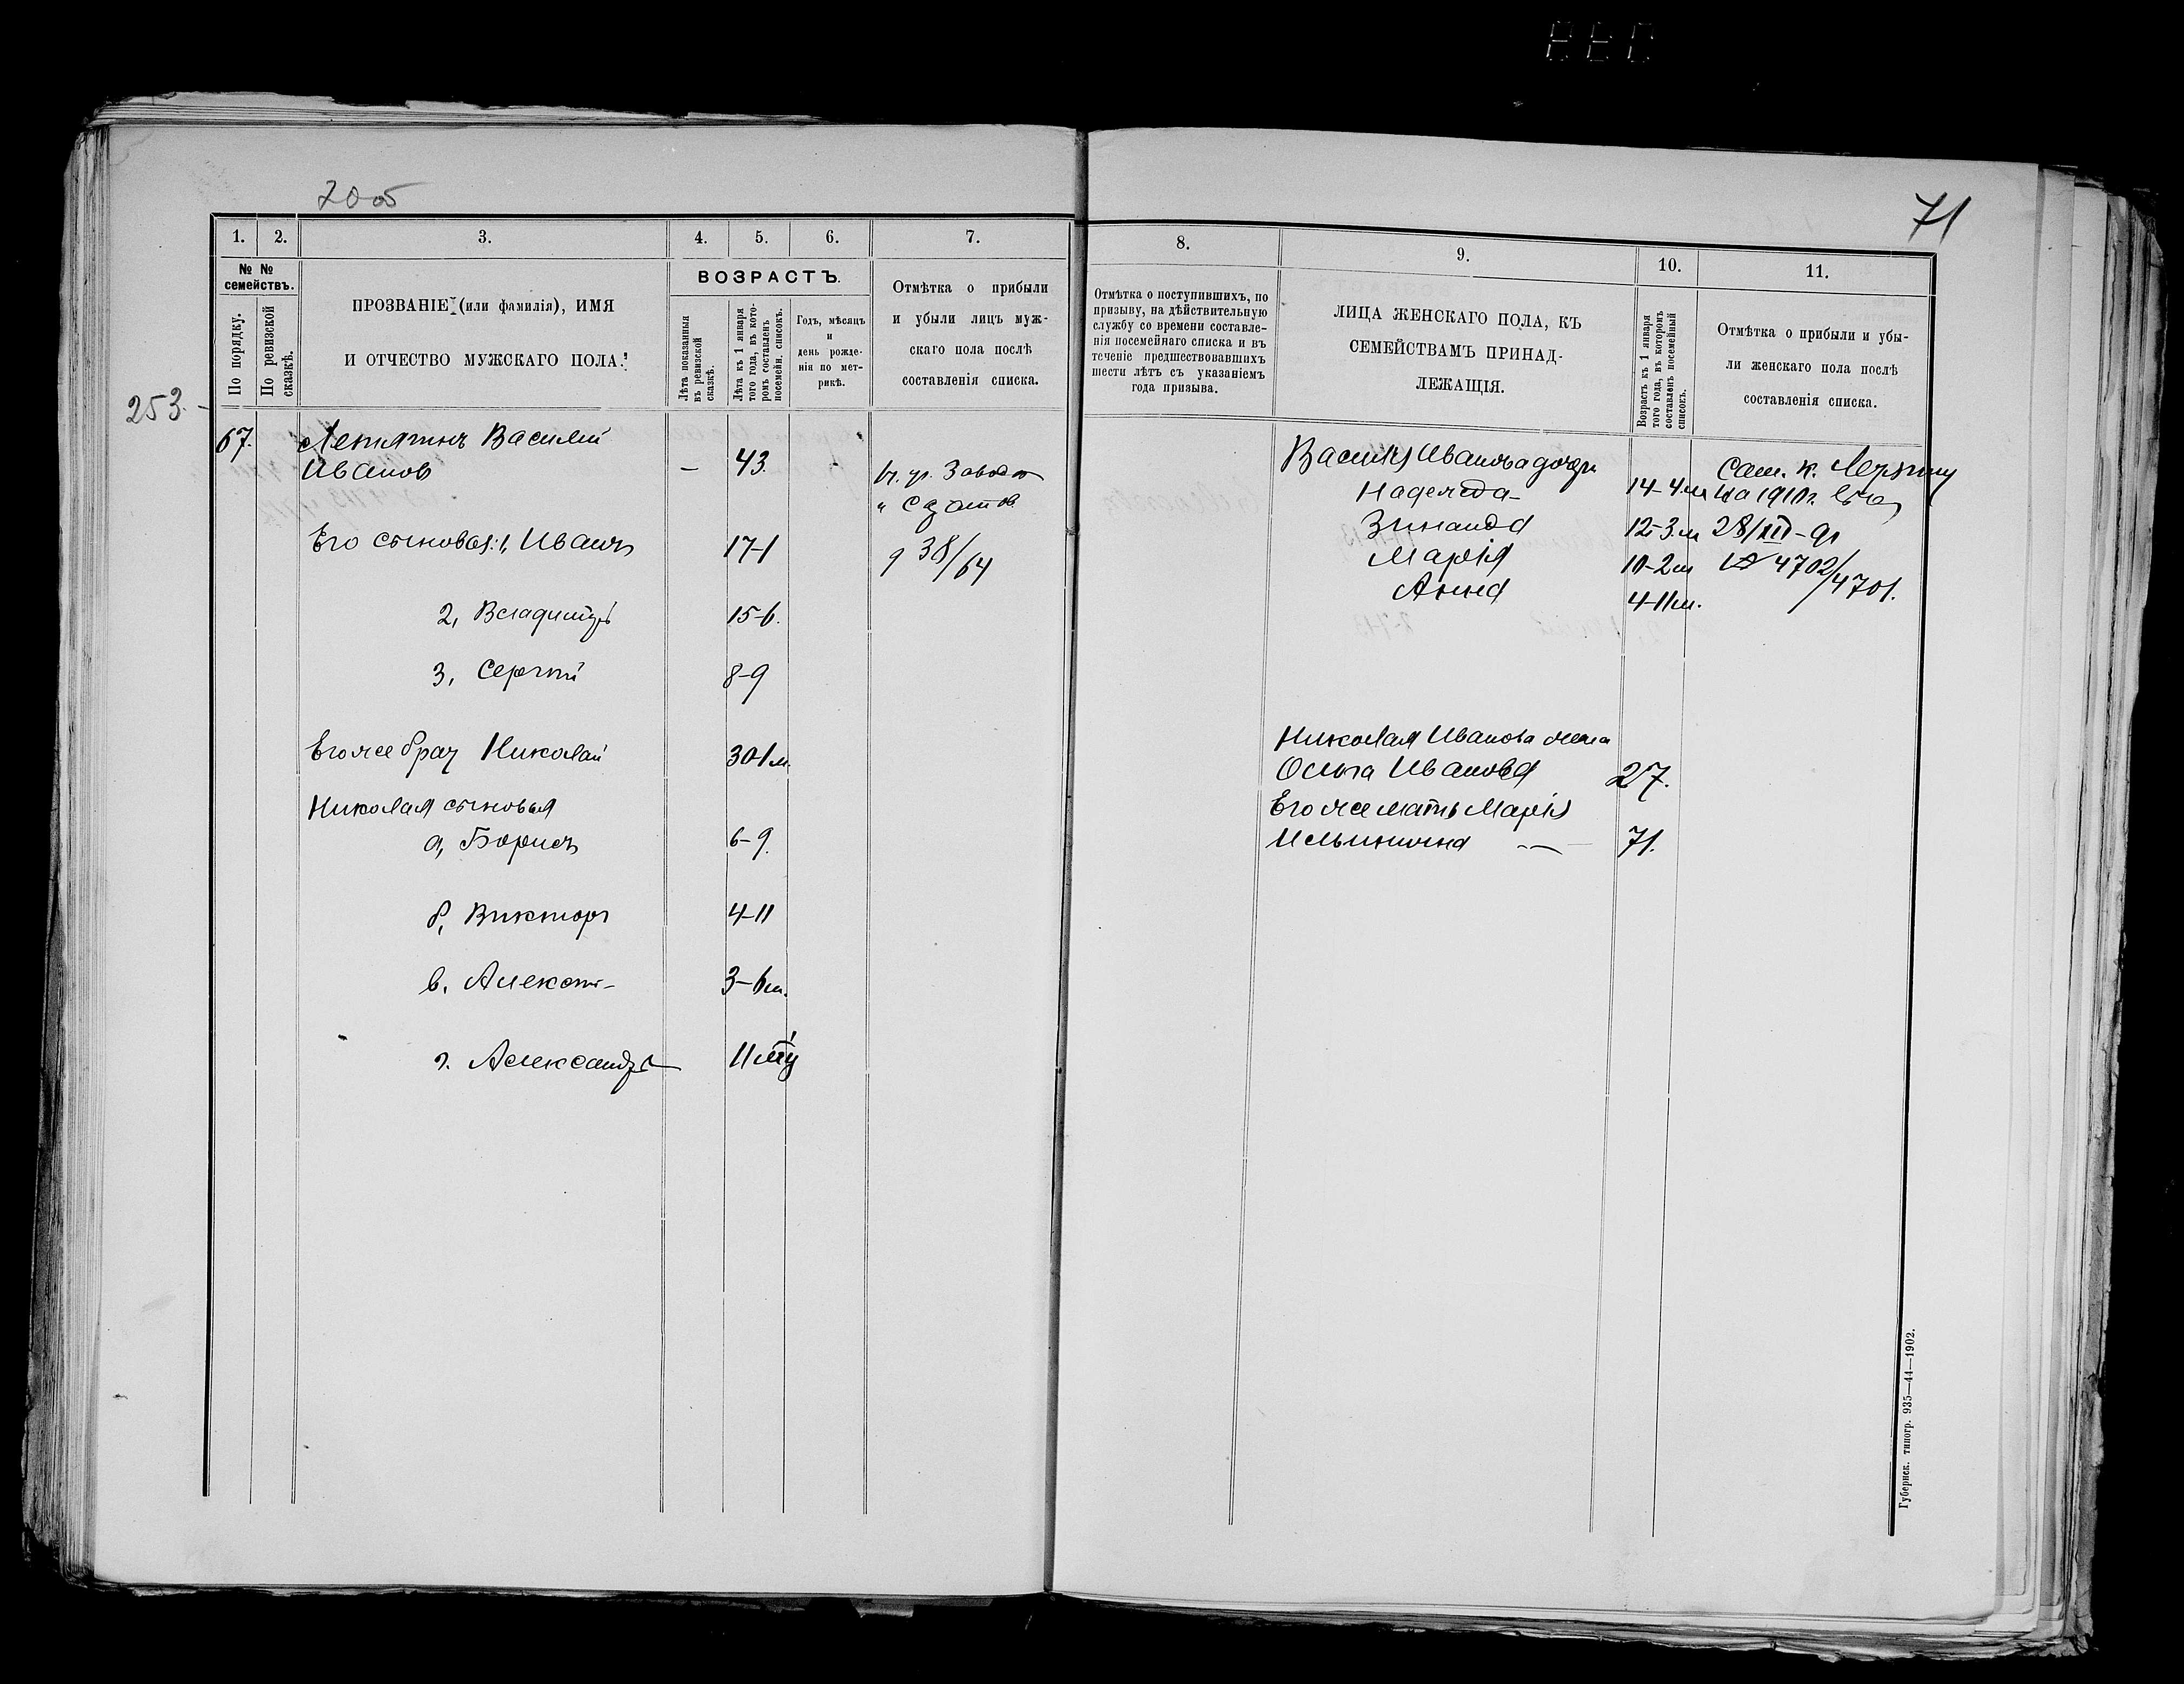 70 об
71
1. 2. 3. 4. 5. 6. 7.
8. 9. 10. 11.
№ № семействъ.
По порядку.
По ревизской сказкѣ.
ПРОЗВАНІЕ (или фамилія), ИМЯ
И ОТЧЕСТВО МУЖСКАГО ПОЛА.
ВОЗРАСТЪ.
Лѣта показанныя
въ ревизской
сказкѣ.
Лѣта къ 1 января
того года, въ кото-
ромъ составленъ
посемейн. списокъ.
Годъ, мѣсяцъ
и
день рожде-
нія по мет-
рикѣ.
Отмѣтка о прибыли
и убыли лицъ муж-
скаго пола послѣ
составленія списка.
Отмѣтка о поступившихъ, по
призыву, на дѣйствительную
службу со времени составле-
нія посемейнаго списка и въ
теченіе предшествовавшихъ
шести лѣтъ съ указаніемъ
года призыва.
ЛИЦА ЖЕНСКАГО ПОЛА, КЪ
СЕМЕЙСТВАМЪ ПРИНАД-
ЛЕЖАЩІЯ.
Возрастъ къ 1 января
того года, въ которомъ
составленъ посемейный
списокъ.
Отмѣтка о прибыли и убы-
ли женскаго пола послѣ
составленія списка.
253. -
67. Василій
Иванов — 43.
Его сыновья: 1, Иванъ 17-1
38/64
2, Владиміръ 15-6.
3, Сергѣй 8-9
Его же брат Николай 30-1 м.
Николая сыновья
а, Борисъ 6-9.
б, Викторъ 4-11
в. 3-6 м.
г. Александръ 11 м
Василія Иванова дочери
Надежда 14-4 м на 1910 г.
Зинаида 12-3 м 28/III
Марія 10-2 м № 4702/4701.
Анна 4-11 м.
Николая Иванова жена
Ольга Иванова 27.
Его же мать Марія
Ильинична — 71.
Губернск. типогр. 935—44—1902.